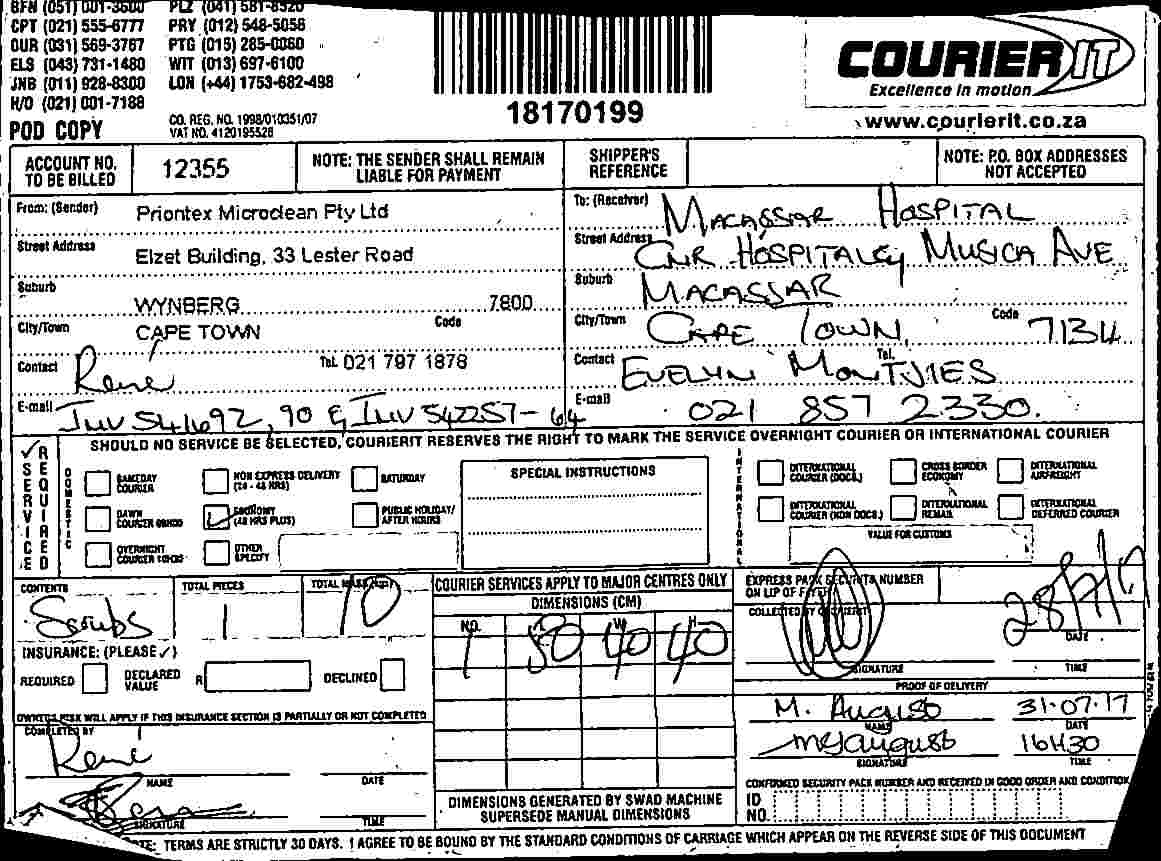 BFN (051) 001-3600 PLZ (041) 581-8320
CPT (021) 555-6777 PRY (012) 548-5056
DUR (031) 569-3767 PTG (015) 285-0060
ELS (043) 731-1480 WIT (013) 697-6100
JNB (011) 928-8300 LON (+44) 1753-682-498
H/O (021) 001-7188
POD COPY
CO. REG. NO. 1998/010351/07
VAT NO. 4120195528
18170199
COURIER IT
Excellence in motion
www.courierit.co.za
ACCOUNT NO. TO BE BILLED 12355
NOTE: THE SENDER SHALL REMAIN LIABLE FOR PAYMENT
SHIPPER'S REFERENCE
NOTE: P.O. BOX ADDRESSES NOT ACCEPTED
From: (Sender) Priontex Microclean Pty Ltd
Street Address Elzet Building, 33 Lester Road
Suburb WYNBERG 7800
City/Town CAPE TOWN Code
Contact René Tel. 021 797 1878
E-mail Inv 541692, 90 & Inv 542257-64
To: (Receiver) MACASSAR HOSPITAL
Street Address CNR HOSPITAL & MUSICA AVE
Suburb MACASSAR
City/Town CAPE TOWN, Code 7134
Contact EVELYN MONTJIES Tel.
E-mail 021 857 2330.
SHOULD NO SERVICE BE SELECTED, COURIERIT RESERVES THE RIGHT TO MARK THE SERVICE OVERNIGHT COURIER OR INTERNATIONAL COURIER
✓ SERVICE REQUIRED
DOMESTIC
SAMEDAY COURIER
NON EXPRESS DELIVERY (24 - 48 HRS)
SATURDAY
DAWN COURIER 09H00
ECONOMY (48 HRS PLUS)
PUBLIC HOLIDAY/ AFTER HOURS
OVERNIGHT COURIER 10H30
OTHER SPECIFY
SPECIAL INSTRUCTIONS
INTERNATIONAL
INTERNATIONAL COURIER (DOCS.)
CROSS BORDER ECONOMY
INTERNATIONAL AIRFREIGHT
INTERNATIONAL COURIER (NON DOCS.)
INTERNATIONAL REMAIL
INTERNATIONAL DEFERRED COURIER
VALUE FOR CUSTOMS
CONTENTS Scrubs
TOTAL PIECES 1
TOTAL MASS (kg) 10
INSURANCE: (PLEASE ✓)
REQUIRED DECLARED VALUE R DECLINED
OWNER'S RISK WILL APPLY IF THIS INSURANCE SECTION IS PARTIALLY OR NOT COMPLETED
COMPLETED BY
René
NAME DATE
SIGNATURE TIME
COURIER SERVICES APPLY TO MAJOR CENTRES ONLY
DIMENSIONS (CM)
NO. L W H
1 80 40 40
DIMENSIONS GENERATED BY SWAD MACHINE SUPERSEDE MANUAL DIMENSIONS
EXPRESS PACK SECURITY NUMBER ON LIP OF FLYER
COLLECTED BY COURIERIT
28/7/17
DATE
SIGNATURE TIME
PROOF OF DELIVERY
M. August 31.07.17
NAME DATE
mgaugust 16H30
SIGNATURE TIME
CONFIRMED SECURITY PACK NUMBER AND RECEIVED IN GOOD ORDER AND CONDITION
ID NO.
NOTE: TERMS ARE STRICTLY 30 DAYS. I AGREE TO BE BOUND BY THE STANDARD CONDITIONS OF CARRIAGE WHICH APPEAR ON THE REVERSE SIDE OF THIS DOCUMENT